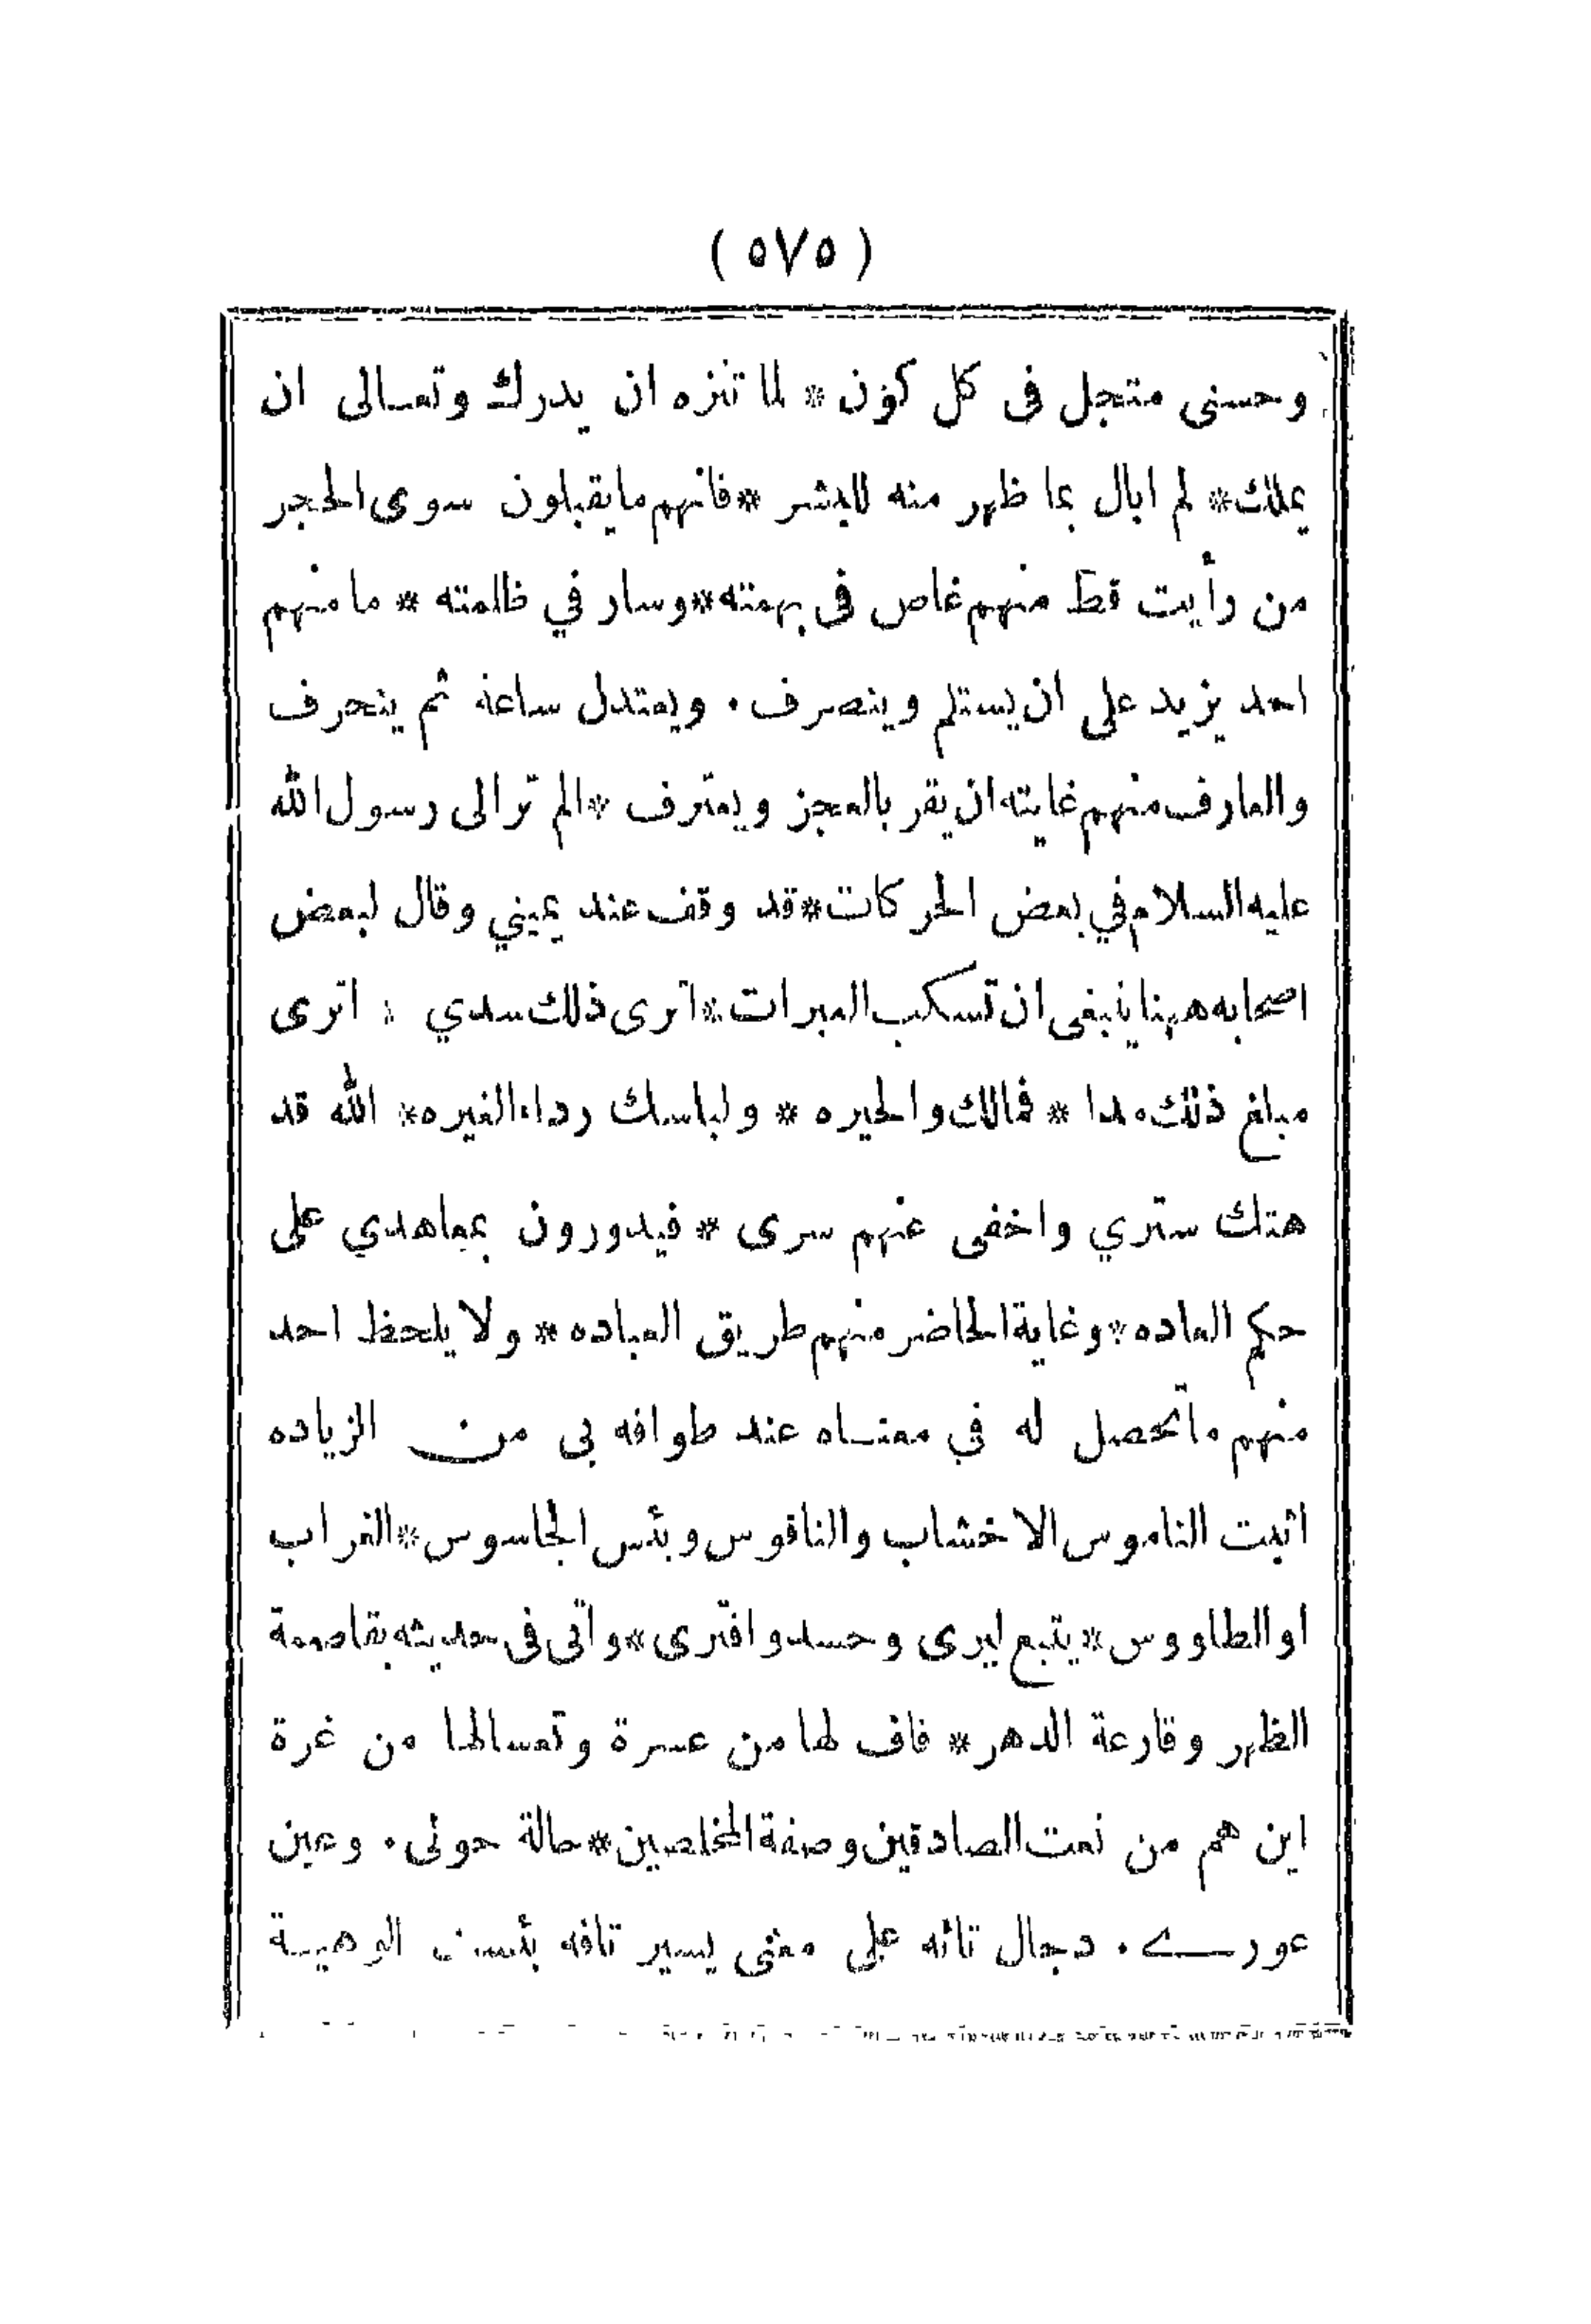 ( ٥٧٥ )
وحسنى متجل فى كل كون * لما تنزه ان يدرك وتعالى ان
يملك * لم ابال بما ظهر منه للبشر * فانهم ما يقبلون سوى الحجر
من رأيت قط منهم غاص فى بهمته * وسار في ظلمته * ما منهم
احد يزيد على ان يستلم وينصرف . ويعتدل ساعة ثم ينحرف
والعارف منهم غايته ان يقر بالعجز ويعترف * الم تر الى رسول الله
عليه السلام في بعض الحركات * قد وقف عند يميني وقال لبعض
اصحابه ههنا ينبغى ان تسكب العبرات * اترى ذلك سدي * اترى
مبلغ ذلك مدا * فمالك والحيره * ولباسك رداء الغيره * الله قد
هتك ستري واخفى عنهم سرى * فيدورون بمعاهدي على
حكم العاده * وغاية الحاضر منهم طريق العباده * ولا يلحظ احد
منهم ما تحصل له في معناه عند طوافه بى من الزياده
اثبت الناموس الاخشاب والناقوس وبئس الجاسوس * الغراب
او الطاووس * يتبع ليرى وحسد وافترى * واتى فى حديثه بقاصمة
الظهر وقارعة الدهر * فاف لها من عسرة وتعسالها من غرة
اين هم من نعت الصادقين وصفة المخلصين * حالة حولى . وعين
عورے . دجال تائه على معنى يسير تافه بئست الوهيبة